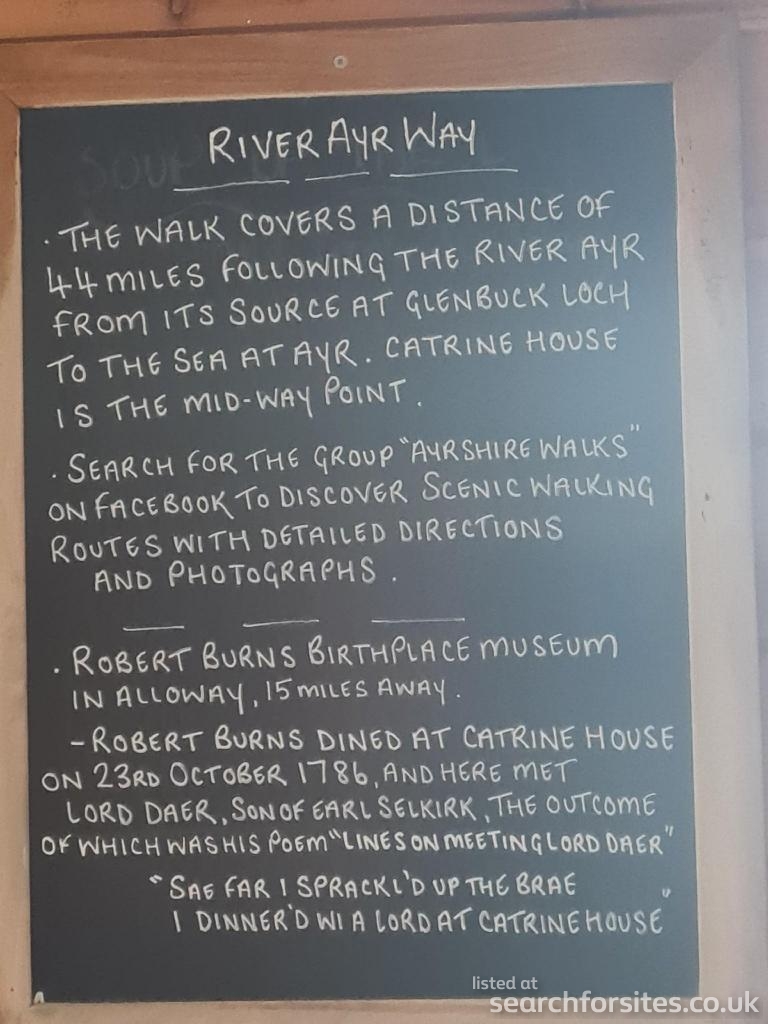 RIVER AYR WAY
· THE WALK COVERS A DISTANCE OF
44 MILES FOLLOWING THE RIVER AYR
FROM ITS SOURCE AT GLENBUCK LOCH
TO THE SEA AT AYR. CATRINE HOUSE
IS THE MID-WAY POINT.
· SEARCH FOR THE GROUP "AYRSHIRE WALKS"
ON FACEBOOK TO DISCOVER SCENIC WALKING
ROUTES WITH DETAILED DIRECTIONS
AND PHOTOGRAPHS.
· ROBERT BURNS BIRTHPLACE MUSEUM
IN ALLOWAY, 15 MILES AWAY.
- ROBERT BURNS DINED AT CATRINE HOUSE
ON 23RD OCTOBER 1786, AND HERE MET
LORD DAER, SON OF EARL SELKIRK, THE OUTCOME
OF WHICH WAS HIS POEM "LINES ON MEETING LORD DAER"
"SAE FAR I SPRACKL'D UP THE BRAE
I DINNER'D WI A LORD AT CATRINE HOUSE"
listed at
searchforsites.co.uk